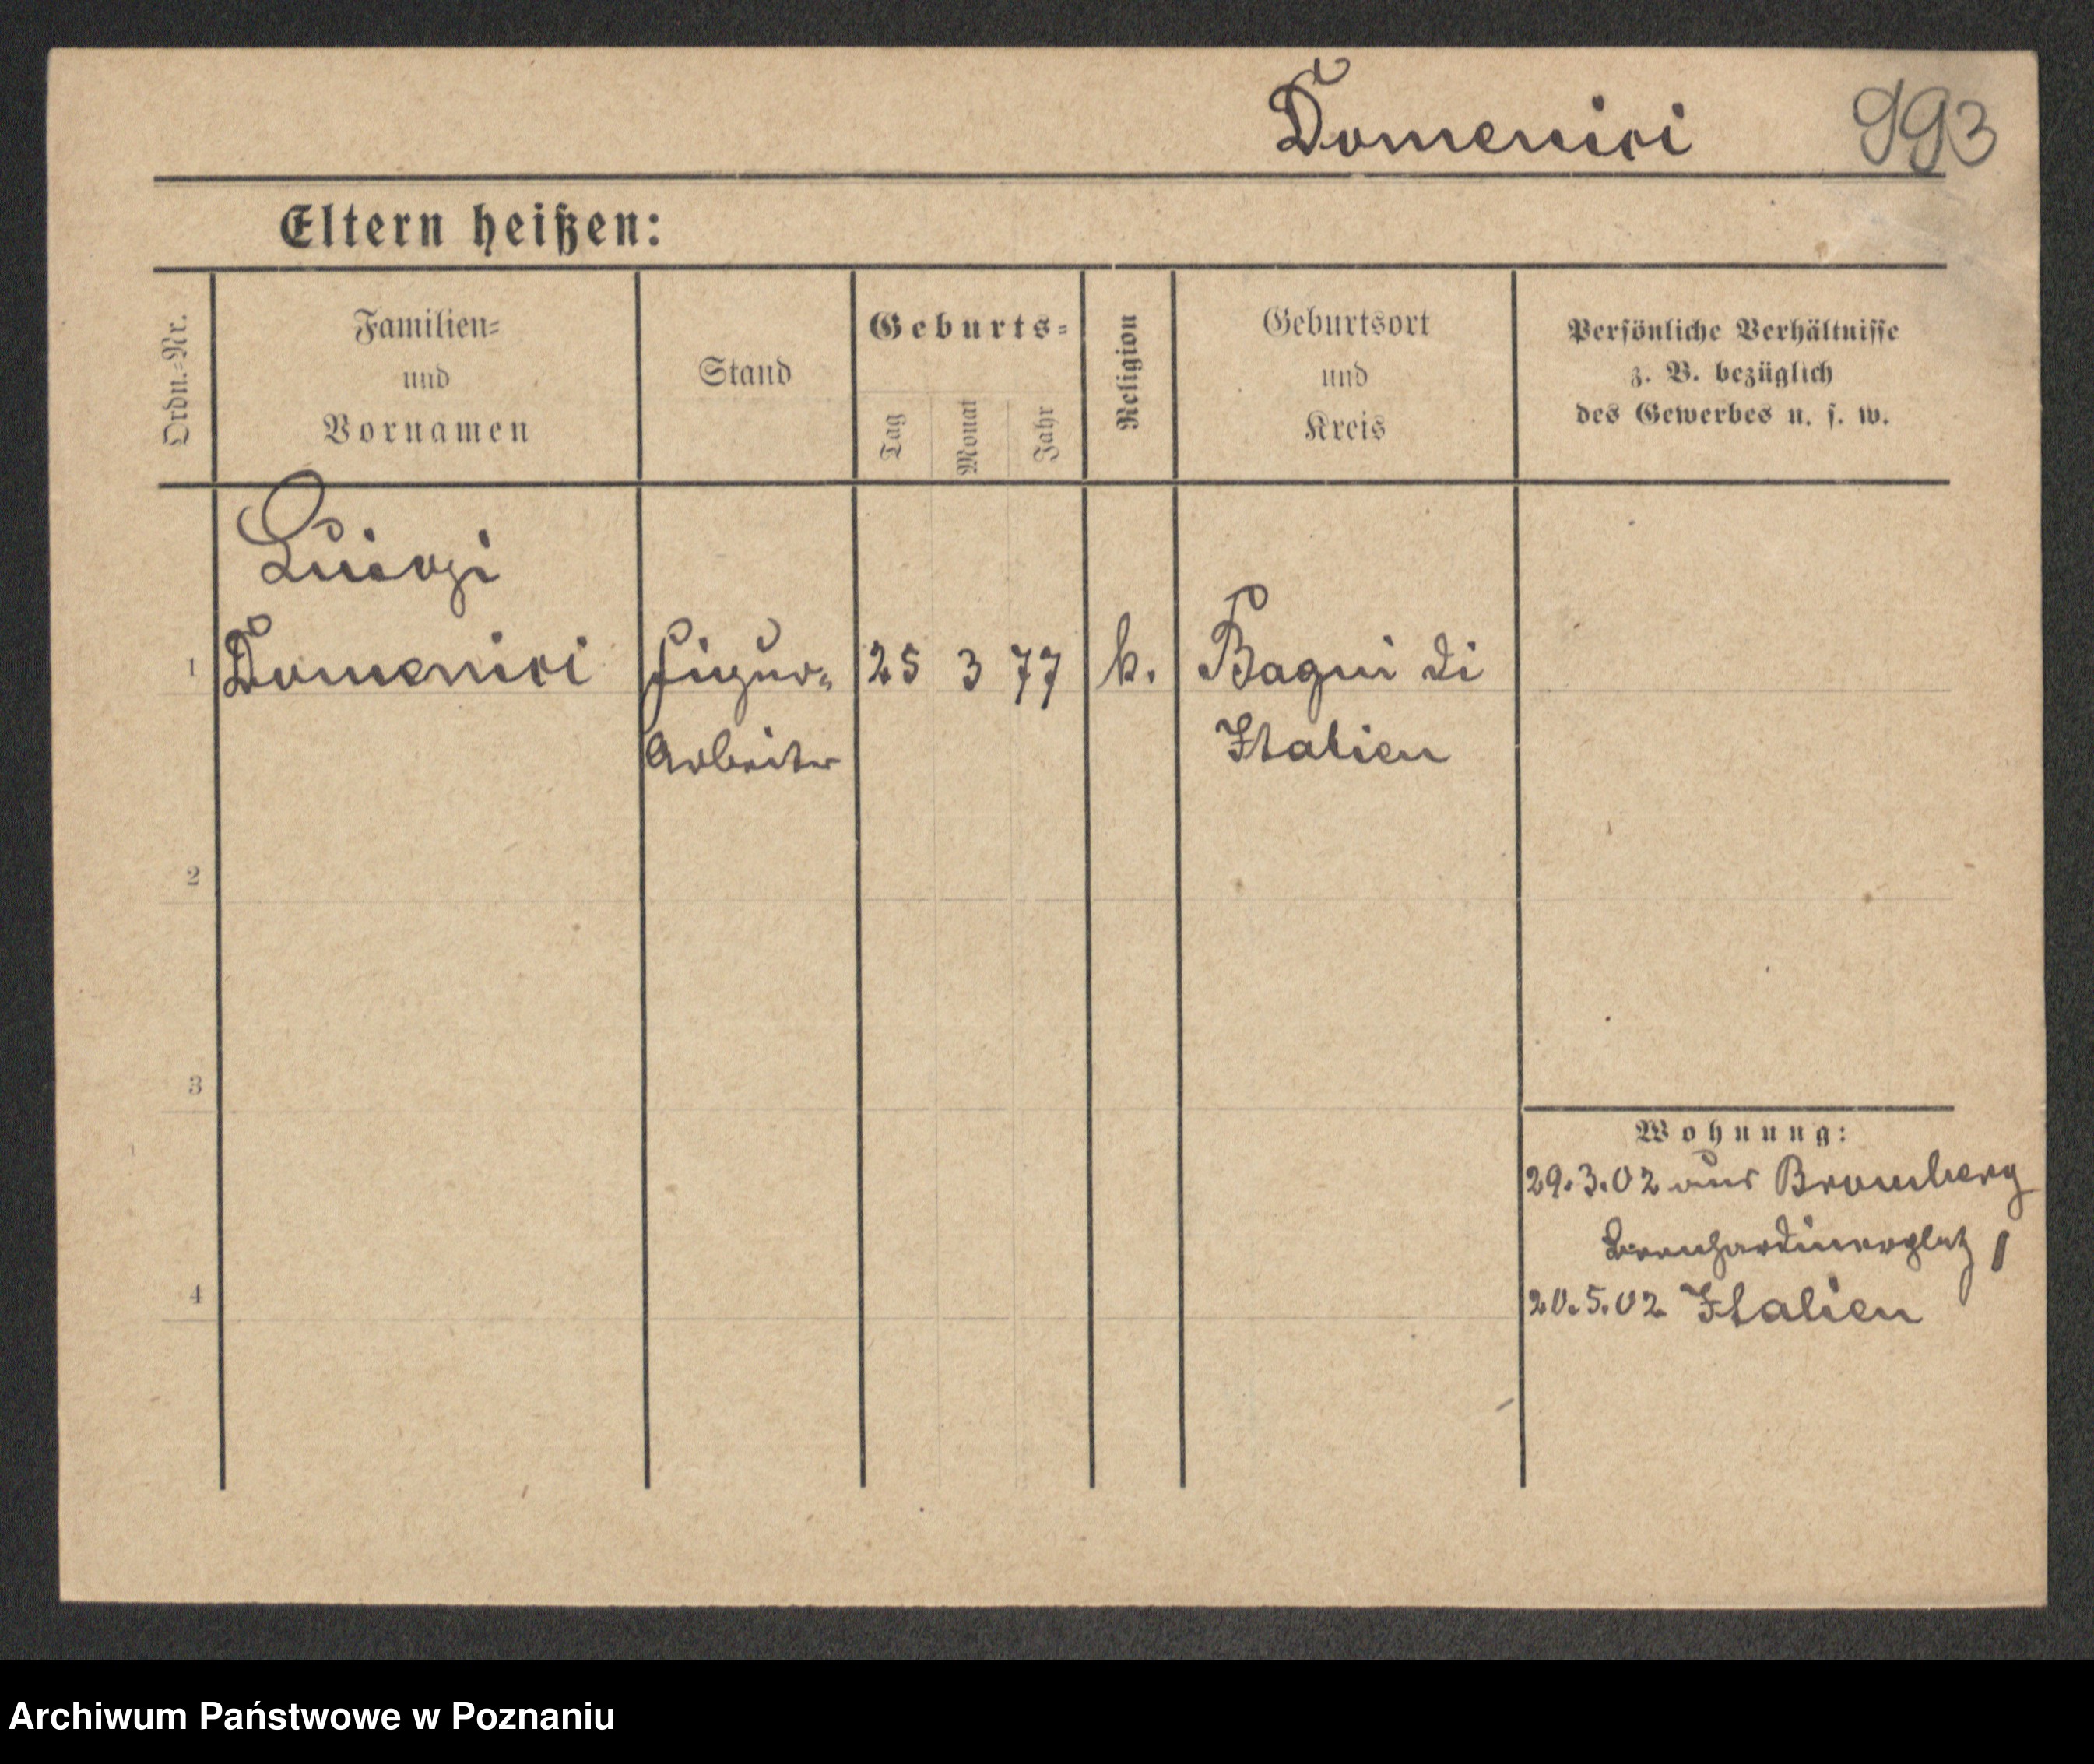 Domenici 993
Eltern heißen:
Ordn.-Nr.
Familien-
und
Vornamen
Stand
Geburts-
Tag
Monat
Jahr
Religion
Geburtsort
und
Kreis
Persönliche Verhältnisse
z. B. bezüglich
des Gewerbes u. s. w.
Luigi
1 Domenici Figur- 25 3 77 k. Bagni di
Arbeiter Italien
2
3
4
Wohnung:
29.3.02 aus Bromberg
Bernhardinerplatz 1
20.5.02 Italien
Archiwum Państwowe w Poznaniu